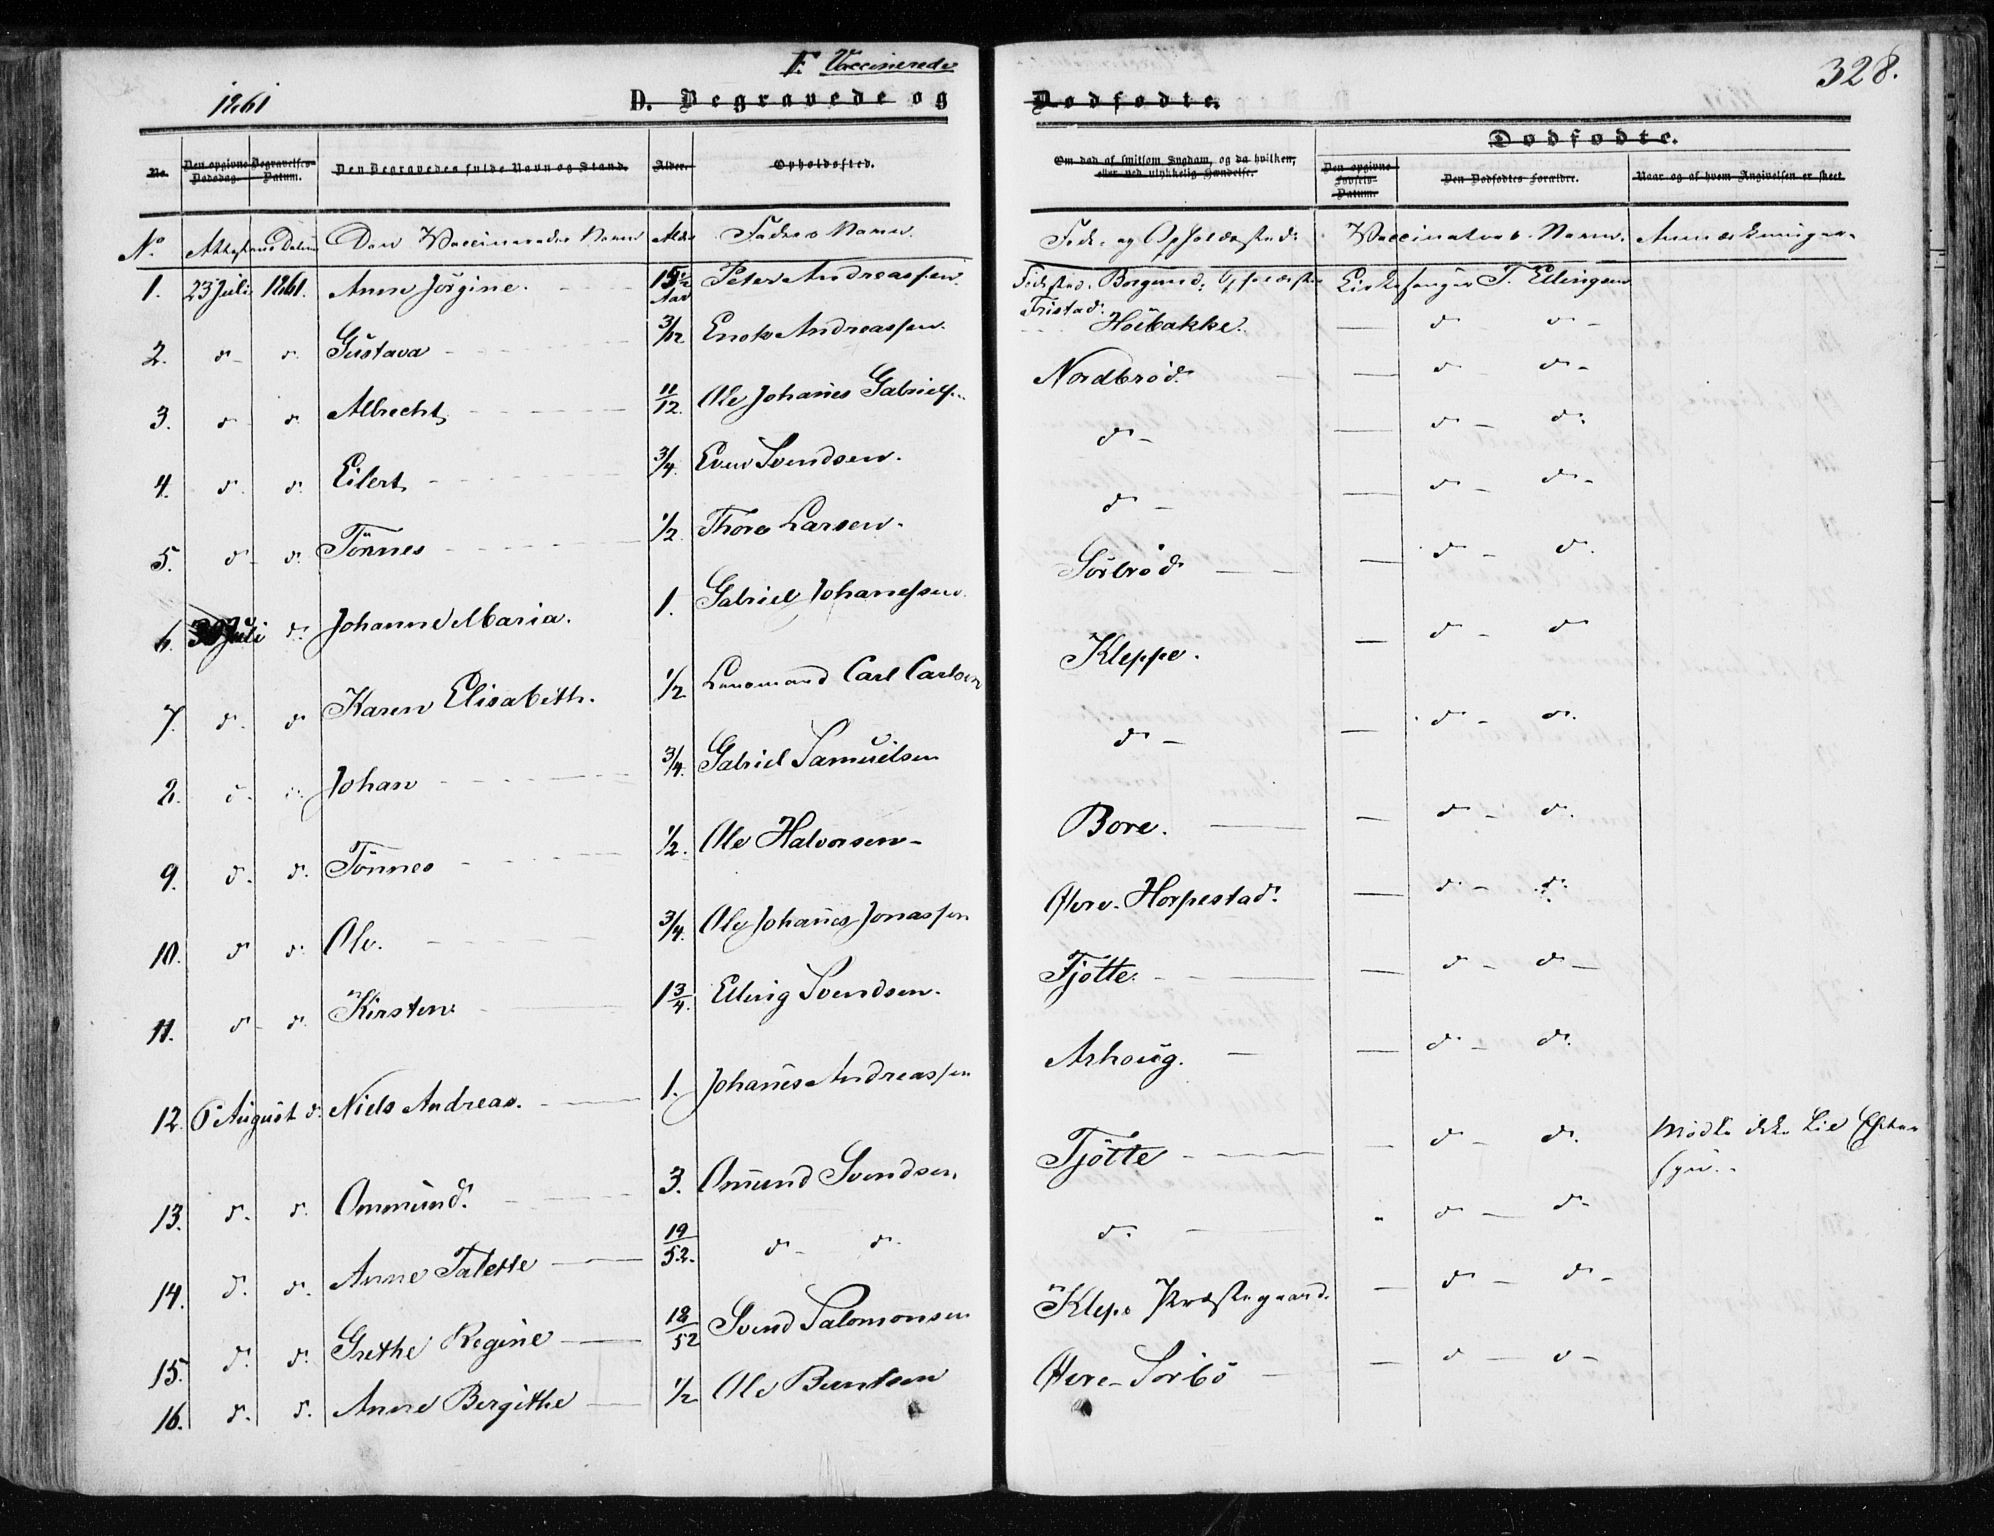 F. Vaccinerede
1861
D. Begravede og
Dødfødte.
328.
No.
Den opgivne Dødsdag.
Begravelses-Datum.
Den Begravedes fulde Navn og Stand.
Alder.
Opholdssted.
Om død af smitsom Sygdom, og da hvilken;
eller ved ulykkelig Hændelse.
Dødfødte.
Den opgivne Fødsels-Datum.
Den Dødfødtes Forældre.
Naar og af hvem Angivelsen er skeet
No. Datum Den Vaccineredes Navn Alder Faders Navn Føde- og Opholdssted. Vaccinateurs Navn. Anmærkninger.
1. 23 Juli 1861. Anne Jörgine. Aar Peter Andreassen. Födested. Borgund, Opholdssted Tristad. Kirkesanger T. Edlingsen
2. d- d. Gustava 3/12 Enok Andreassen. Höibakke. d d-
3. d- d. Albrecht 11/12. Ole Johanes Gabriels. Nordbröd. d- d-
4. d. d. Eilert 3/4. Even Svendsen. d- d- d.
5. d- d. Tönnes 1/2 Thore Larsen. d- d- d-
6. 30 Juli d. Johanne Maria. 1. Gabriel Johanessen. Sörbröd d- d.
7. d. d Karen Elisabeth. 1/2 Lensmand Carl Carlsen Kleppe. d- d
8. d. d. Johan 3/4. Gabriel Samuelsen d- d- d.
9. d. d. Tönnes 1/2. Ole Halvorsen- Bore. d- d.
10. d d. Ole. 3/4. Ole Johanes Jonassen Horpestad. d- d.
11. d- d. Kirsten 1 3/4. Elling Svendsen. Tjötte. d- d-
12. 6 August d. Niels Andreas. 1. Johanes Andreassen Ashoug. d- d.
13. d. d. Ommund. 3. Omund Svendsen Tjötte d- d. Mödte ikke til Eftersyn.
14. d. d. Anne Talette 19/52. d- d. d. d- d-
15. d. d. Grethe Regine 18/52 Svend Salomonsen Klepe Præstegaard. d- d-
16. d. d. Anne Bergithe 1/2 Ole Berntsen Sörbö d- d-